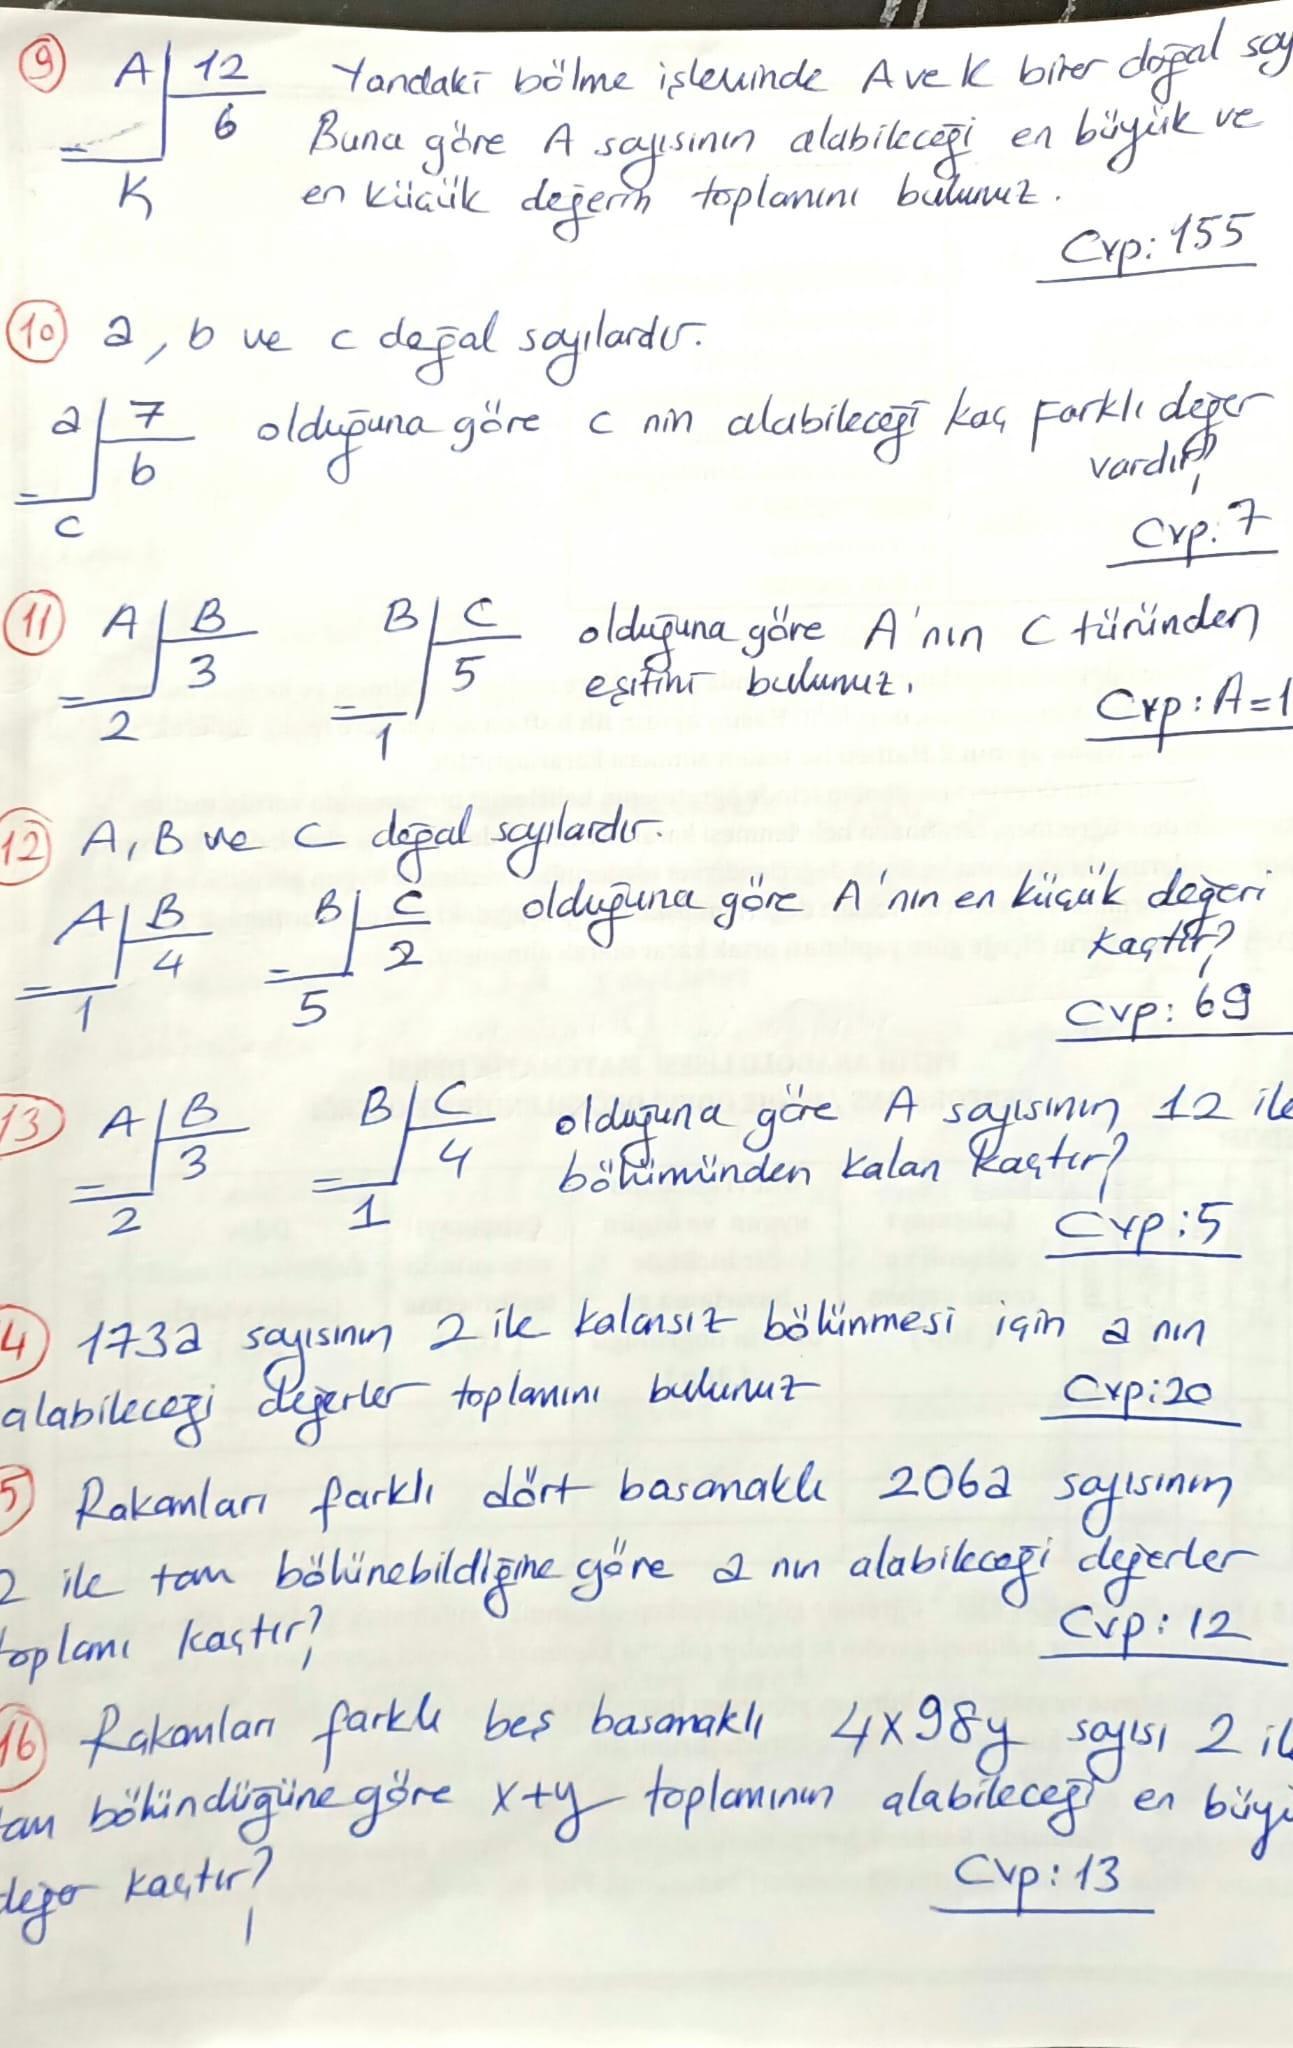 9 A 12 Yandaki bölme işleminde A ve K birer doğal say
6 Buna göre A sayısının alabileceği en büyük ve
K en küçük değerin toplamını bulunuz.
Cvp: 155
10 a, b ve c doğal sayılardır.
a 7 olduğuna göre c nin alabileceği kaç farklı değer
b vardır?
c
Cvp: 7
11 A B B C olduğuna göre A'nın C türünden
3 5 eşitini bulunuz.
2 1 Cvp: A=1
12 A, B ve C doğal sayılardır.
A B B C olduğuna göre A'nın en küçük değeri
4 2 kaçtır?
1 5 Cvp: 69
13 A B B C olduğuna göre A sayısının 12 ile
3 4 bölümünden kalan kaçtır?
2 1 Cvp: 5
4 173a sayısının 2 ile kalansız bölünmesi için a nın
alabileceği değerler toplamını bulunuz Cvp: 20
5 Rakamları farklı dört basamaklı 206a sayısının
2 ile tam bölünebildiğine göre a nın alabileceği değerler
toplamı kaçtır? Cvp: 12
16 Rakamları farklı beş basamaklı 4x98y sayısı 2 il
tam bölündüğüne göre x+y toplamının alabileceği en büyü
değer kaçtır? Cvp: 13